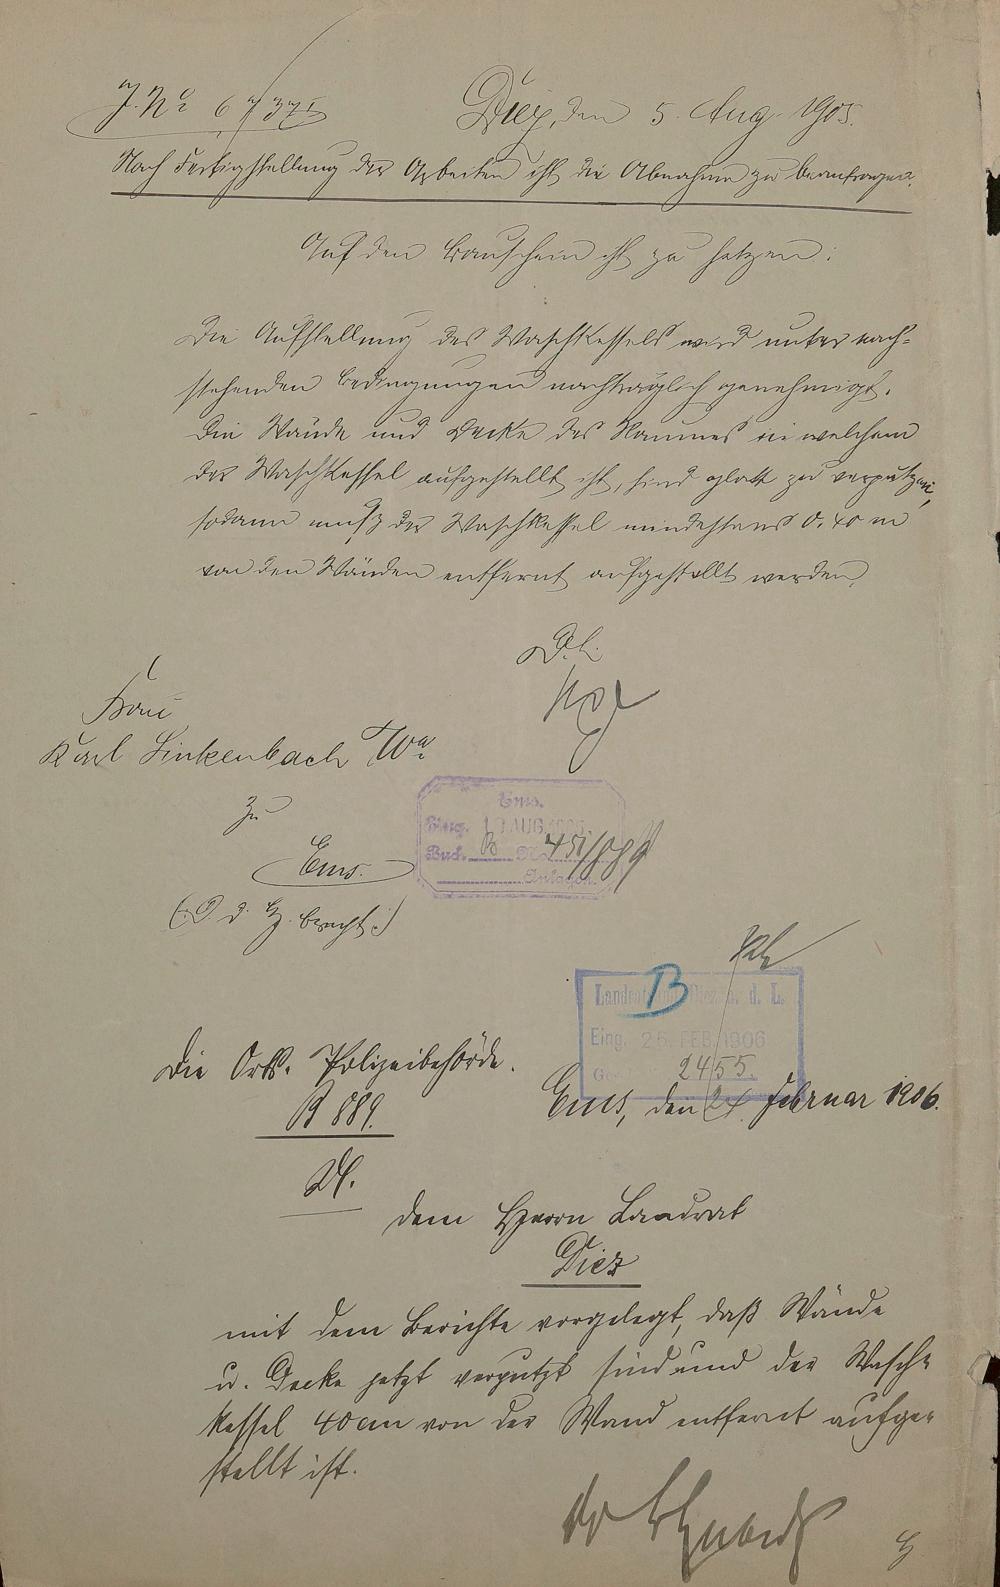 J. No 6
Diez, den 5. Aug. 1905.
Nach Fertigstellung der Arbeiten ist die Abnahme zu beantragen.
Auf den Bauschein ist zu setzen:
Die Aufstellung des Waschkessels wird unter nach-
stehenden Bedingungen nachträglich genehmigt.
Die Wände und Decke des Raumes in welchem
der Waschkessel aufgestellt ist, sind glatt zu verputzen,
sodann muß der Waschkessel mindestens 0.40 m
von den Wänden entfernt aufgestellt werden.
D. L.
Frau
Karl Linkenbach Wwe
zu
Ems.
Ems.
Eing. AUG. 1905
Buch. B No
Anlagen.
B
Landratsamt Diez a. d. L.
Eing. 25. FEB. 1906
2455.
Die Orts-Polizeibehörde.
B 889.
Ems, den 24. Februar 1906.
dem Herrn Landrat
Diez
mit dem Berichte vorgelegt, daß Wände
u. Decke jetzt verputzt sind und der Wasch-
kessel 40 cm von der Wand entfernt aufge-
stellt ist.